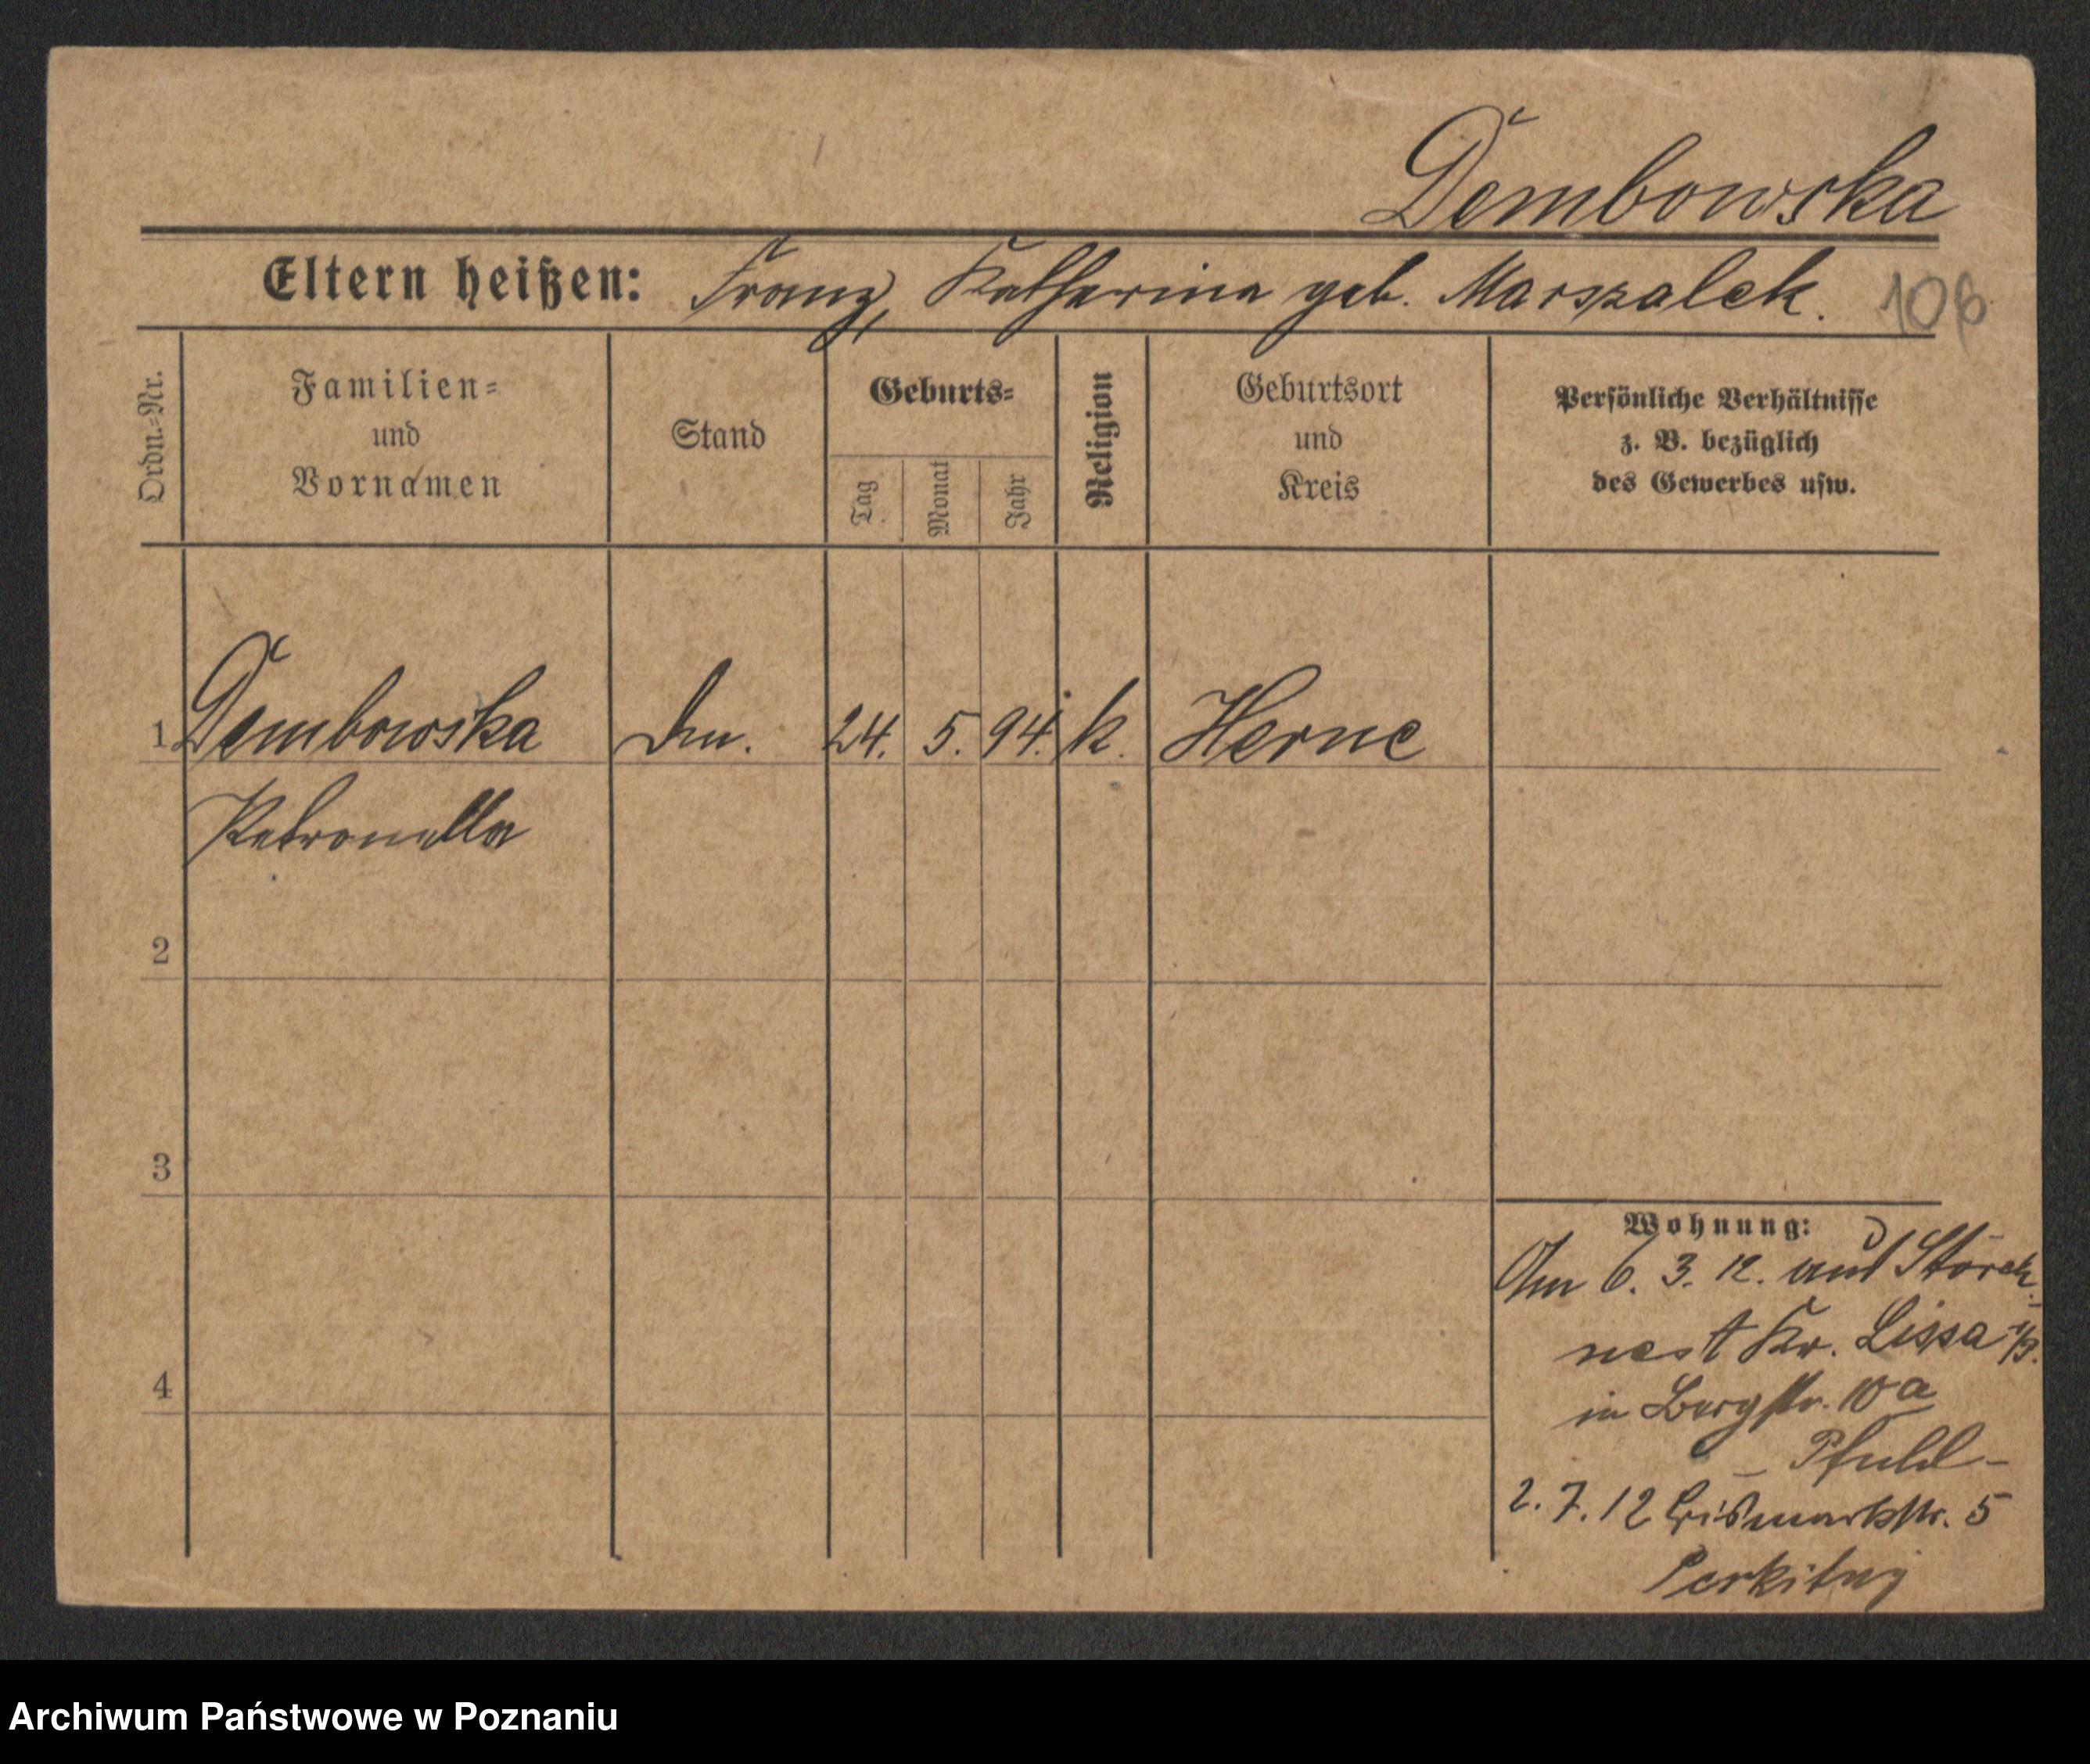 Dembowska
Eltern heißen: Franz, Katharina geb. Marszalek.
108
Ordn.-Nr.
Familien-
und
Vornamen
Stand
Geburts-
Tag
Monat
Jahr
Religion
Geburtsort
und
Kreis
Persönliche Verhältnisse
z. B. bezüglich
des Gewerbes usw.
1 Dembowska 24. 5. 94. k. Herne
Petronella
2
3
4
Wohnung:
Am 6. 3. 12. aus Storch-
nest Kr. Lissa i/P.
in Bergstr. 10a
- Pfuhl -
2. 7. 12 Bismarkstr. 5
Archiwum Państwowe w Poznaniu